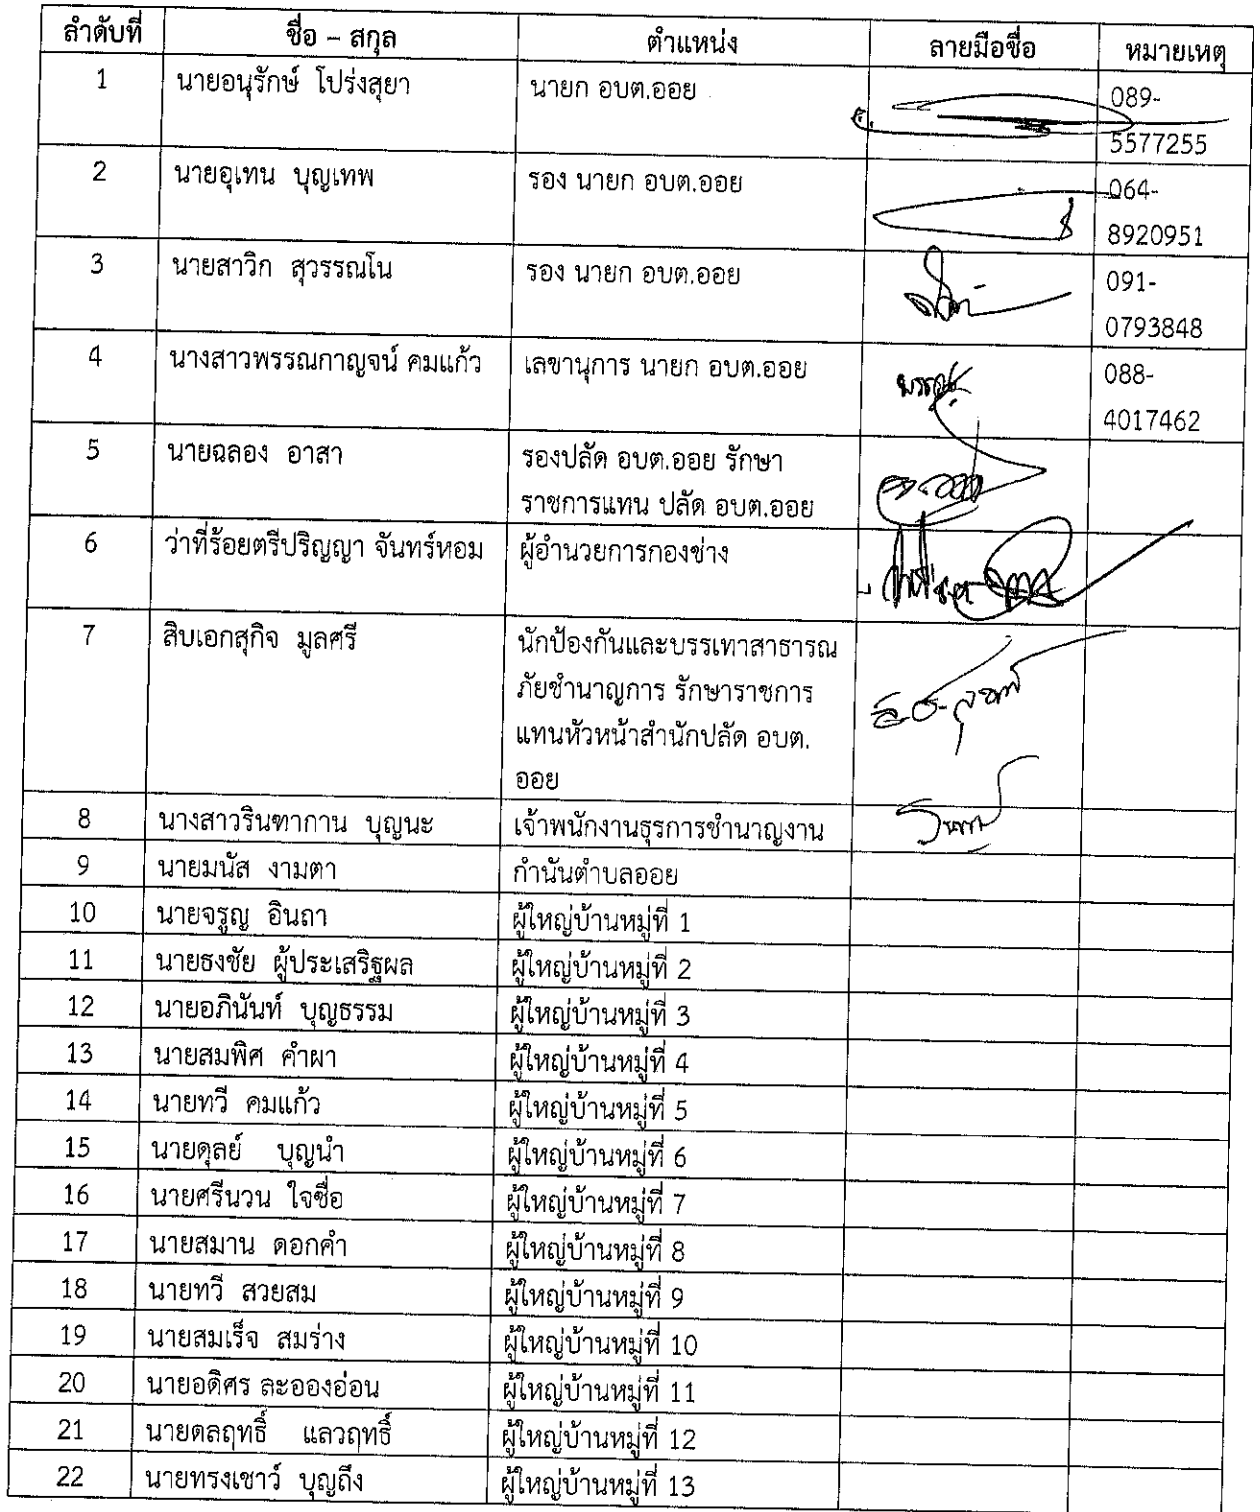 ลำดับที่ ชื่อ – สกุล ตำแหน่ง ลายมือชื่อ หมายเหตุ
1 นายอนุรักษ์ โปร่งสุยา นายก อบต.ออย 089-
5577255
2 นายอุเทน บุญเทพ รอง นายก อบต.ออย 064-
8920951
3 นายสาวิก สุวรรณโน รอง นายก อบต.ออย 091-
0793848
4 นางสาวพรรณกาญจน์ คมแก้ว เลขานุการ นายก อบต.ออย 088-
4017462
5 นายฉลอง อาสา รองปลัด อบต.ออย รักษา
ราชการแทน ปลัด อบต.ออย
6 ว่าที่ร้อยตรีปริญญา จันทร์หอม ผู้อำนวยการกองช่าง
7 สิบเอกสุกิจ มูลศรี นักป้องกันและบรรเทาสาธารณ
ภัยชำนาญการ รักษาราชการ
แทนหัวหน้าสำนักปลัด อบต.
ออย
8 นางสาวรินฑากาน บุญนะ เจ้าพนักงานธุรการชำนาญงาน
9 นายมนัส งามตา กำนันตำบลออย
10 นายจรูญ อินถา ผู้ใหญ่บ้านหมู่ที่ 1
11 นายธงชัย ผู้ประเสริฐผล ผู้ใหญ่บ้านหมู่ที่ 2
12 นายอภินันท์ บุญธรรม ผู้ใหญ่บ้านหมู่ที่ 3
13 นายสมพิศ คำผา ผู้ใหญ่บ้านหมู่ที่ 4
14 นายทวี คมแก้ว ผู้ใหญ่บ้านหมู่ที่ 5
15 นายดุลย์ บุญนำ ผู้ใหญ่บ้านหมู่ที่ 6
16 นายศรีนวน ใจซื่อ ผู้ใหญ่บ้านหมู่ที่ 7
17 นายสมาน ดอกคำ ผู้ใหญ่บ้านหมู่ที่ 8
18 นายทวี สวยสม ผู้ใหญ่บ้านหมู่ที่ 9
19 นายสมเร็จ สมร่าง ผู้ใหญ่บ้านหมู่ที่ 10
20 นายอดิศร ละอองอ่อน ผู้ใหญ่บ้านหมู่ที่ 11
21 นายดลฤทธิ์ แลวฤทธิ์ ผู้ใหญ่บ้านหมู่ที่ 12
22 นายทรงเชาว์ บุญถึง ผู้ใหญ่บ้านหมู่ที่ 13